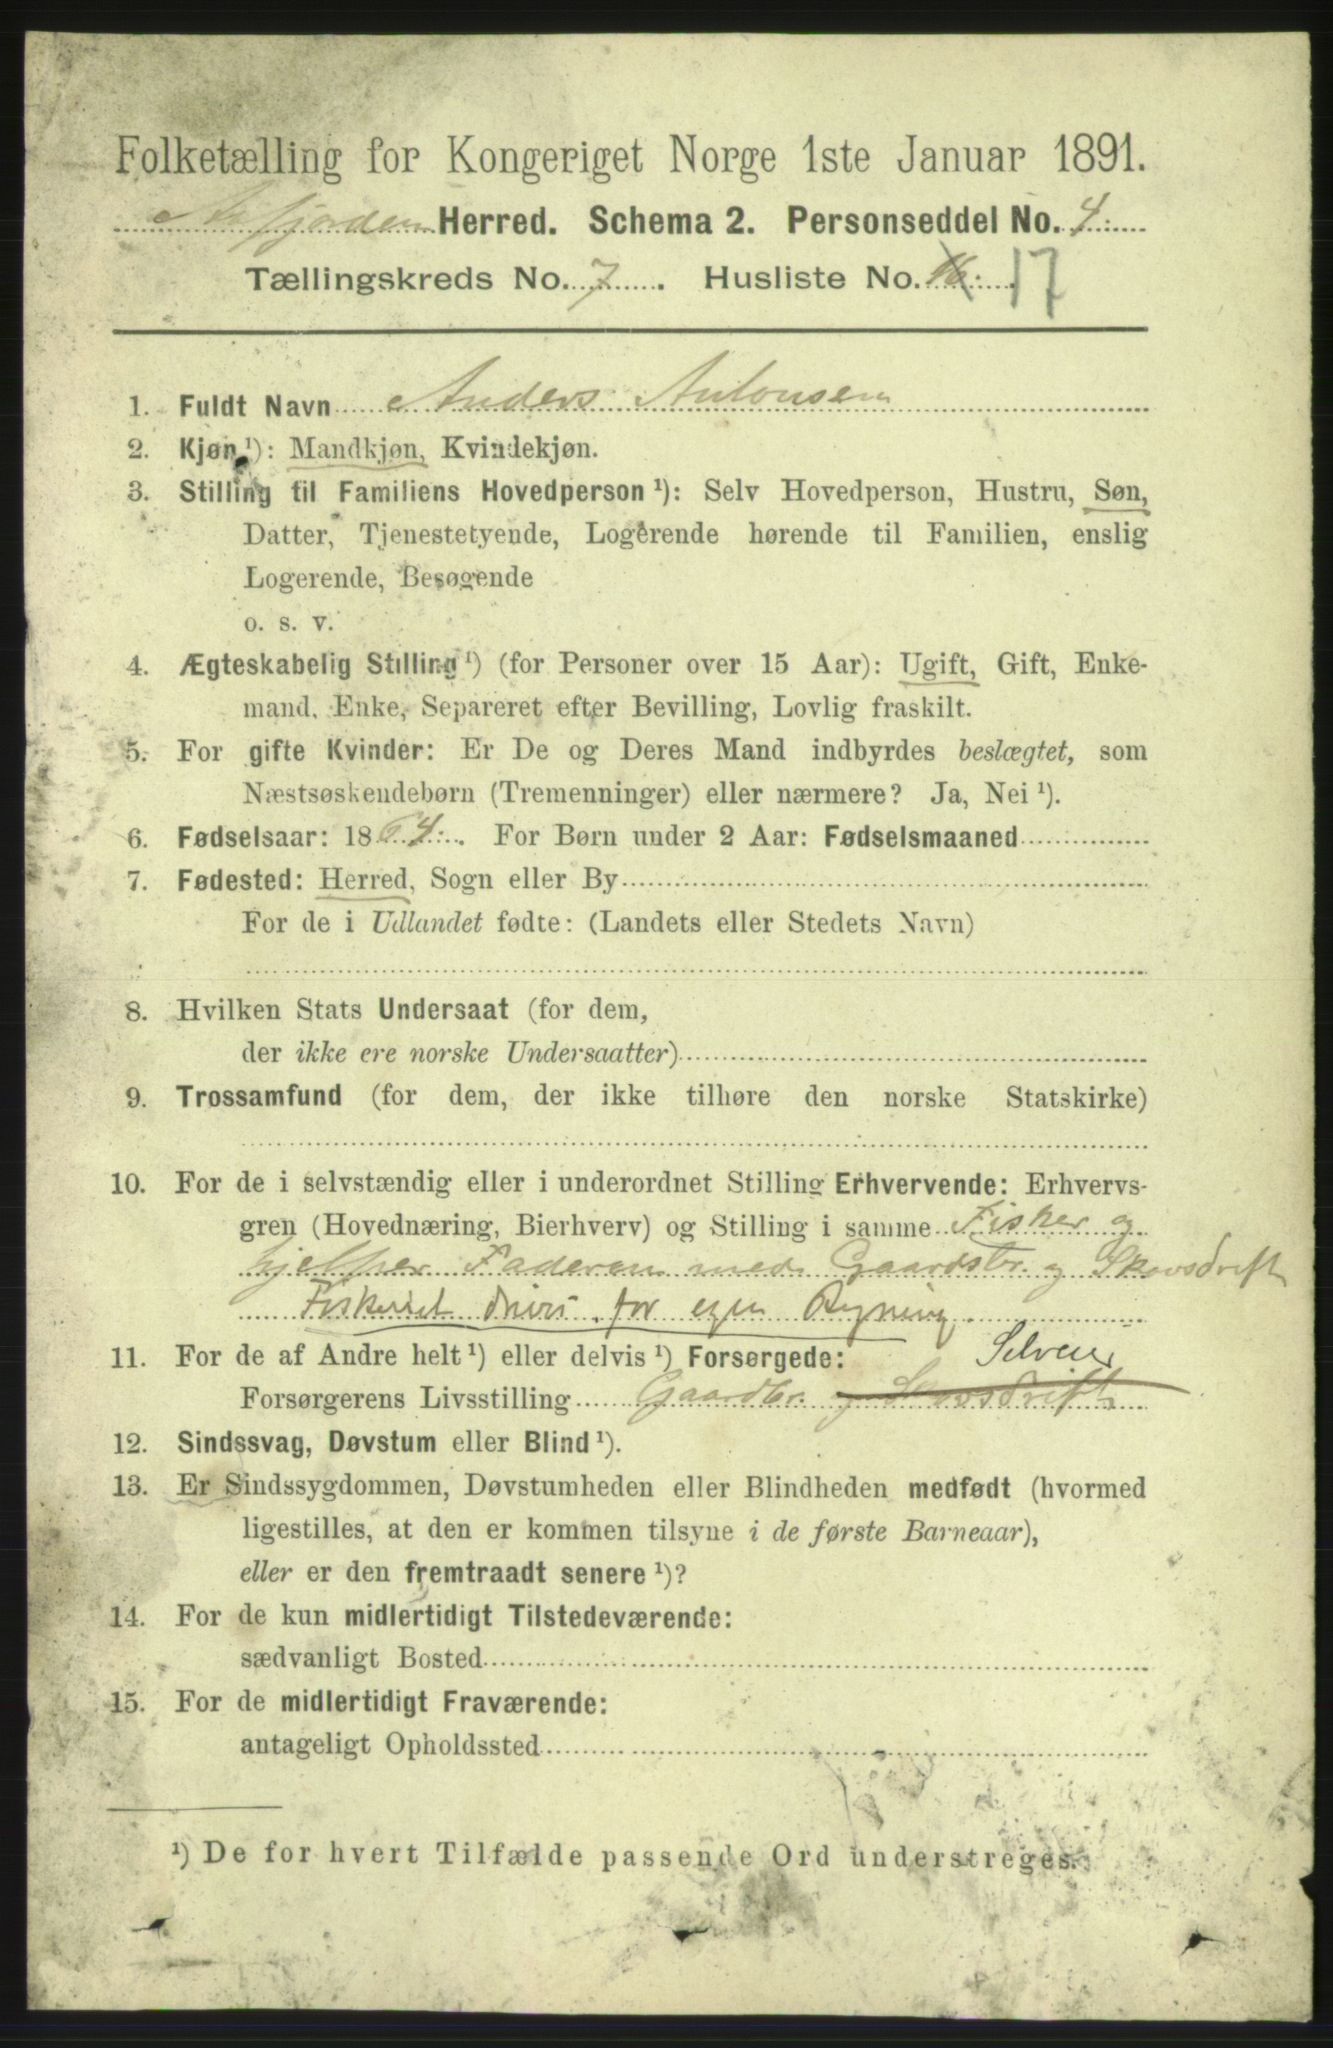 Folketælling for Kongeriget Norge 1ste Januar 1891.
Aafjorden Herred. Schema 2. Personseddel No. 4.
Tællingskreds No. 7. Husliste No. 16. 17
1. Fuldt Navn Anders Antonsen
2. Kjøn ¹): Mandkjøn, Kvindekjøn.
3. Stilling til Familiens Hovedperson ¹): Selv Hovedperson, Hustru, Søn,
Datter, Tjenestetyende, Logerende hørende til Familien, enslig
Logerende, Besøgende
o. s. v.
4. Ægteskabelig Stilling ¹) (for Personer over 15 Aar): Ugift, Gift, Enke-
mand, Enke, Separeret efter Bevilling, Lovlig fraskilt.
5. For gifte Kvinder: Er De og Deres Mand indbyrdes beslægtet, som
Næstsøskendebørn (Tremenninger) eller nærmere? Ja, Nei ¹).
6. Fødselsaar: 1864. For Børn under 2 Aar: Fødselsmaaned
7. Fødested: Herred, Sogn eller By
For de i Udlandet fødte: (Landets eller Stedets Navn)
8. Hvilken Stats Undersaat (for dem,
der ikke ere norske Undersaatter)
9. Trossamfund (for dem, der ikke tilhøre den norske Statskirke)
10. For de i selvstændig eller i underordnet Stilling Erhvervende: Erhvervs-
gren (Hovednæring, Bierhverv) og Stilling i samme Fisker og
hjelper Faderen med Gaardsbr. og Skovsdrift
Fiskeriet drives for egen Regning.
11. For de af Andre helt ¹) eller delvis ¹) Forsørgede: Selveier
Forsørgerens Livsstilling Gaardbr. og Skovsdrift
12. Sindssvag, Døvstum eller Blind ¹).
13. Er Sindssygdommen, Døvstumheden eller Blindheden medfødt (hvormed
ligestilles, at den er kommen tilsyne i de første Barneaar),
eller er den fremtraadt senere ¹)?
14. For de kun midlertidigt Tilstedeværende:
sædvanligt Bosted
15. For de midlertidigt Fraværende:
antageligt Opholdssted
¹) De for hvert Tilfælde passende Ord understreges.